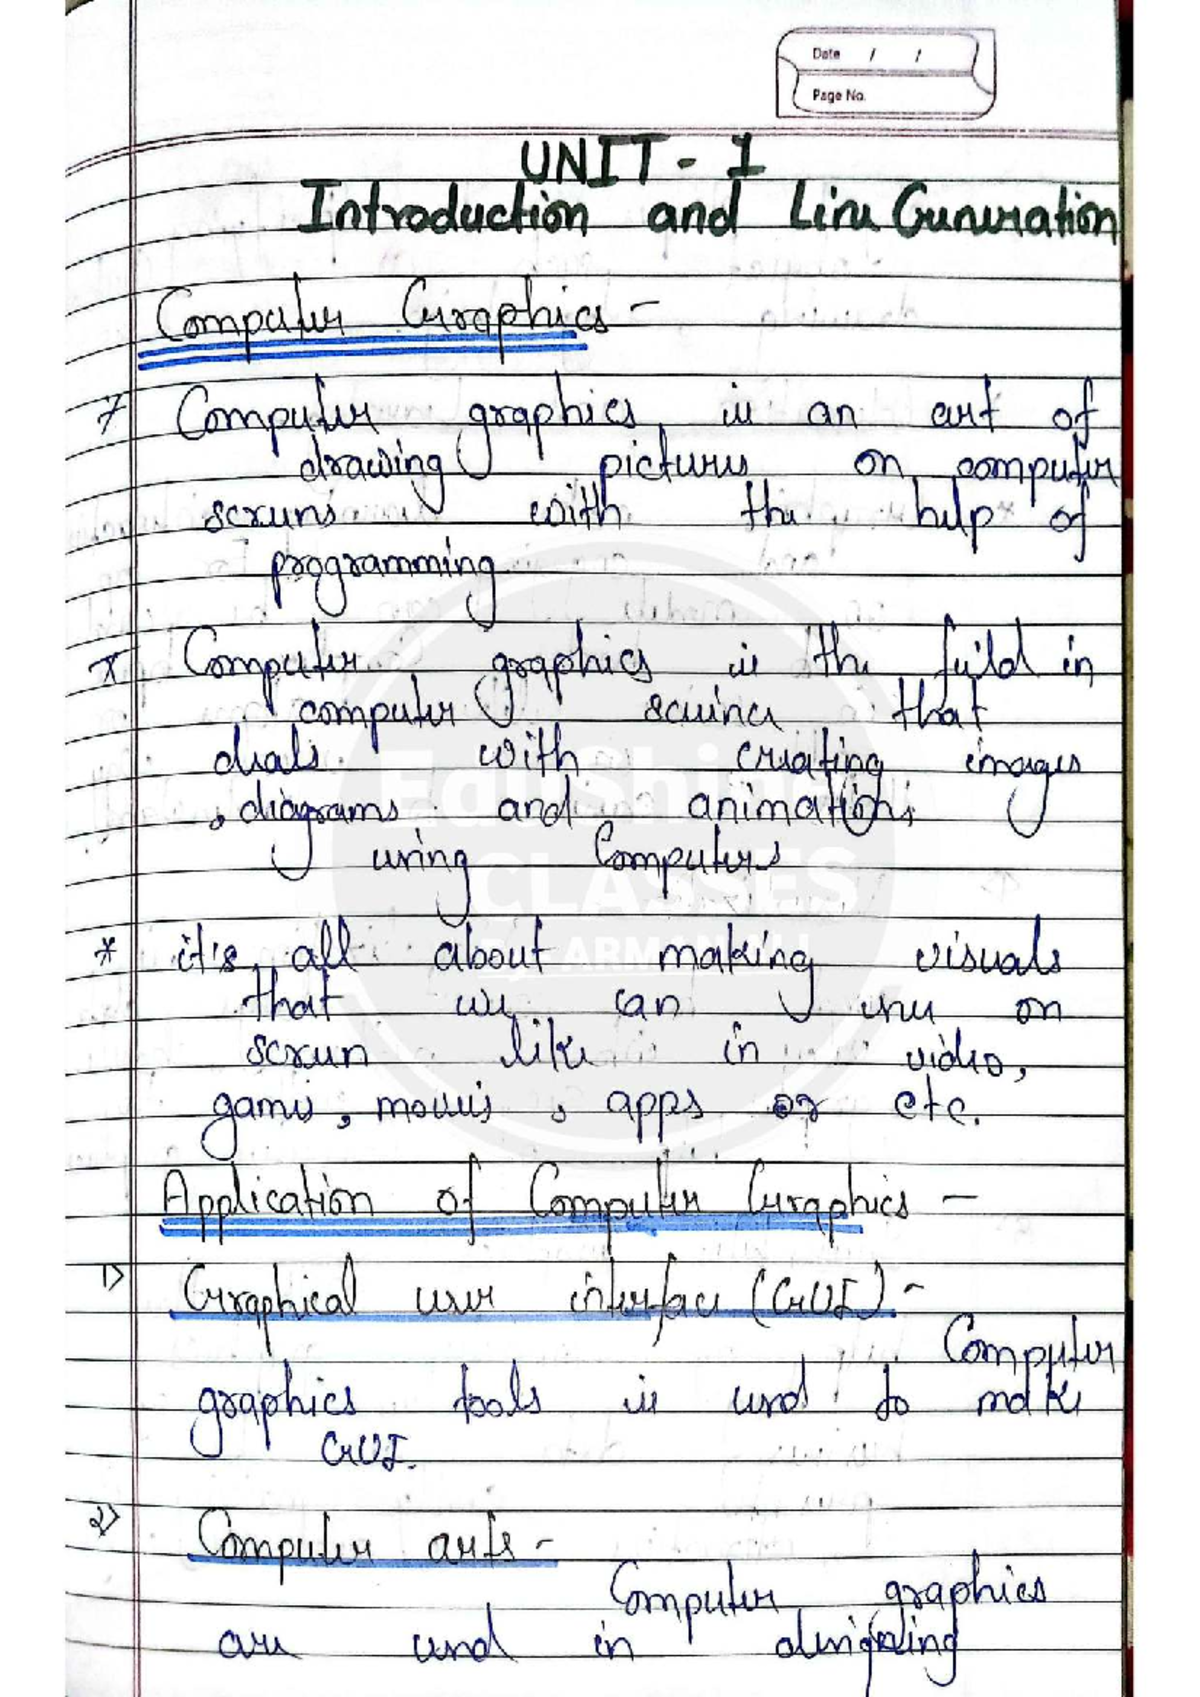 Date / /
Page No.
UNIT - 1
Introduction and Line Generation
Computer Graphics -
* Computer graphics is an art of
drawing pictures on computer
screens with the help of
programming
* Computer graphics is the feild in
computer science that
deals with creating images
, diagrams and animations
using Computers
* it's all about making visuals
that we can use on
screen like in video,
games, movies, apps or etc.
Application of Computer Graphics -
1) Graphical user interface (GUI) -
Computer
graphics tools is used to make
GUI.
2) Computer arts -
Computer graphics
are used in designing
EduShine
CLASSES
By ARMAN ALI